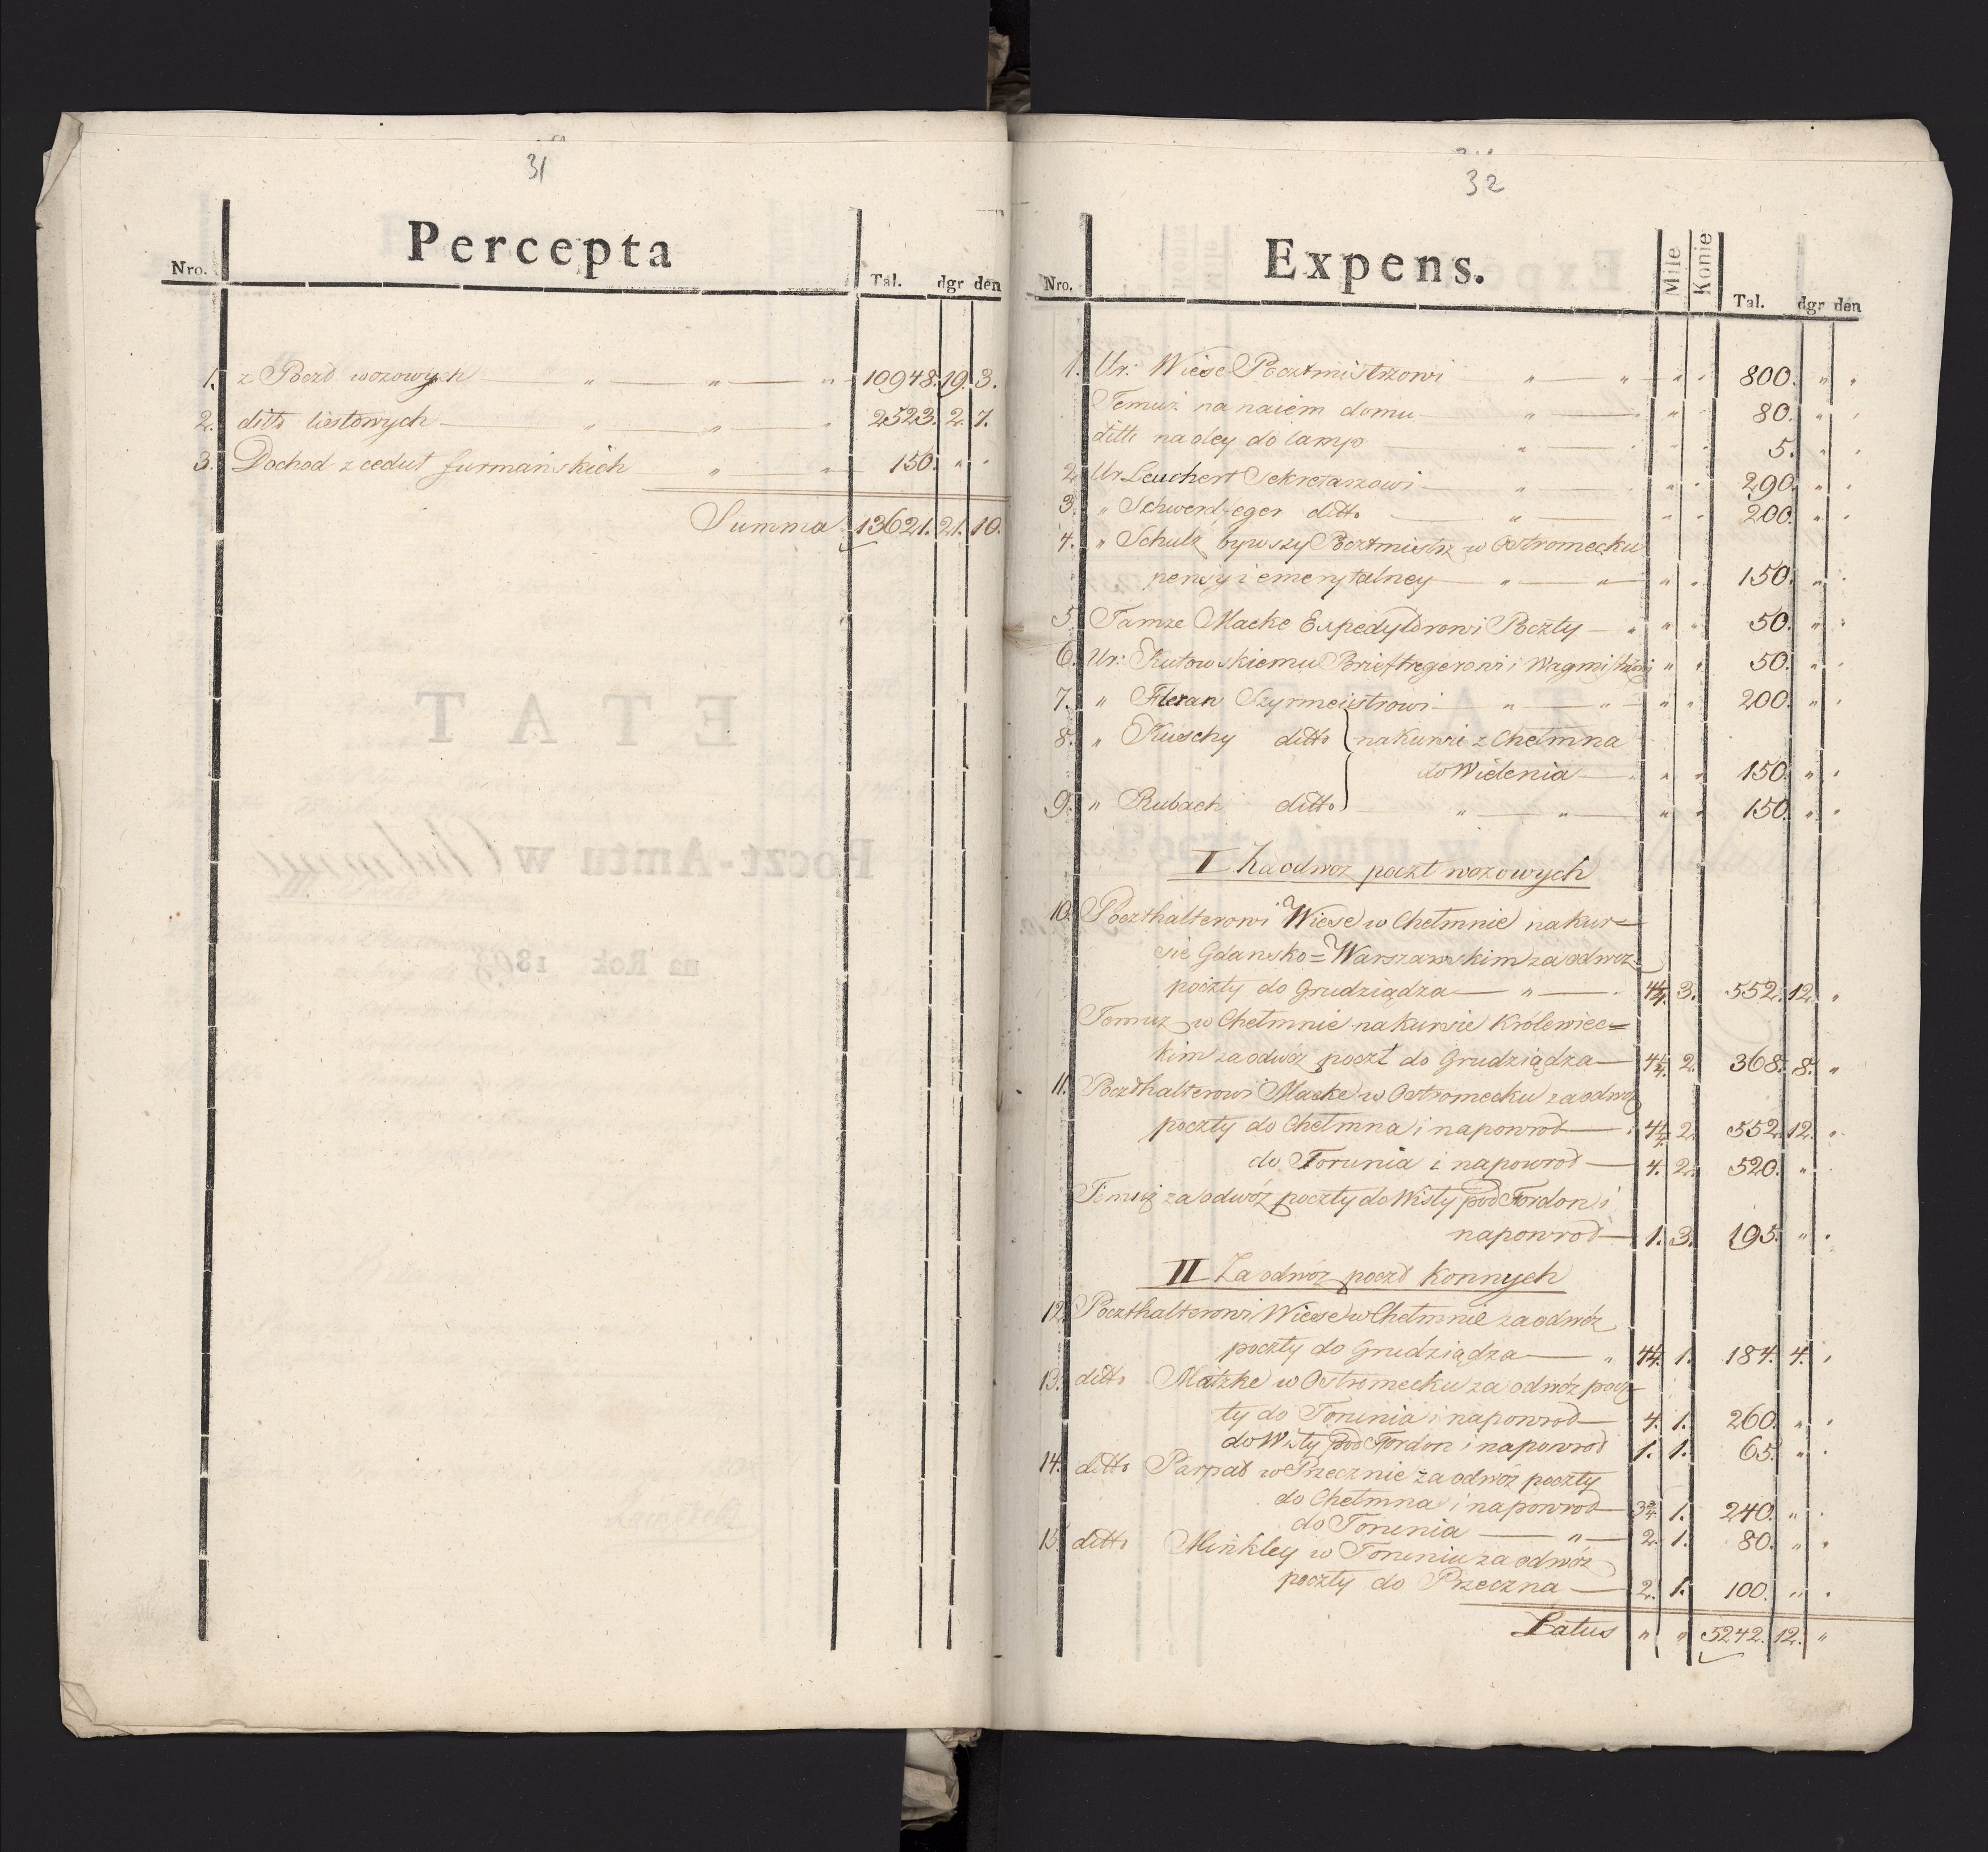 31
Percepta
Nro. Tal. dgr den
1. z Poczd wozowych — " — " — " 10948. 19. 3.
2. ditto listowych — " — " — " 2523. 2. 7.
3. Dochod z cedut furmańskich " — " 150. " "
Summa 13621. 21. 10.
32
Expens.
Nro. Mile Konie Tal. dgr den
1. Ur: Wiese Pocztmistrzowi — " — " — " " 800. " "
Temuż na naiem domu — " — " " 80. " "
ditto na oley do lamp — " — " " 5. " "
2. Ur Leuchert Sekretarzowi — " — " " 290. " "
3. " Schwerdfeger ditto — " — " " 200. " "
4. " Schulz bywszy Pocztmistrz w Ostromecku
pensyi emerytalney — " — " — " " 150. " "
5. Tamze Macke Expedytorowi Poczty — " " " 50. " "
6. Ur: Kutowskiemu Brieftregerowi i Wagmistrzowi " " 50. " "
7. " Fleran Szyrmeistrowi — " — " — " " 200. " "
8. " Kuschy ditto na Kursie z Chełmna
do Widenia — " " " 150. " "
9. " Rubach ditto " — " — " " 150. " "
I Za odwoz poczt wozowych
10. Poczthalterowi Wiese w Chełmnie na kur=
sie Gdansko=Warszawskim za odwoz
poczty do Grudziądza — " — 4¼. 3. 552. 12. "
Temuz w Chełmnie na kursie Królewiec=
kim za odwóz poczt do Grudziądza — 4¼. 2. 368. 8. "
11. Poczthalterowi Macke w Ostromecku za odwoz
poczty do Chełmna i napowrod — 4¼. 2. 552. 12. "
do Torunia i napowrod — 4. 2. 520. "
Temuż za odwóz poczty do Wisły pod Fordon i
napowrod — 1. 3. 195. " "
II Za odwóz poczd Konnych
12. Poczthalterowi Wiese w Chełmnie za odwóz
poczty do Grudziądza — " 4¼. 1. 184. 4. "
13. ditto Matzke w Ostromecku za odwóz pocz=
ty do Torunia i napowrod — 4. 1. 260. " "
do Wisły pod Fordon i napowrod 1. 1. 65. " "
14. ditto Parpat w Przecznie za odwóz poczty
do Chełmna i napowrod — 3¾. 1. 240. " "
do Torunia — " — 2. 1. 80. " "
15. ditto Minkley w Toruniu za odwóz
poczty do Przeczna — 2. 1. 100. " "
Latus " " 5242. 12. "